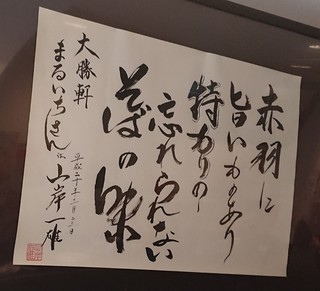 赤羽に
旨いものあり
特カリの
忘れられない
そばの味
平成二十年三月
大勝軒
まるいち
山岸一雄